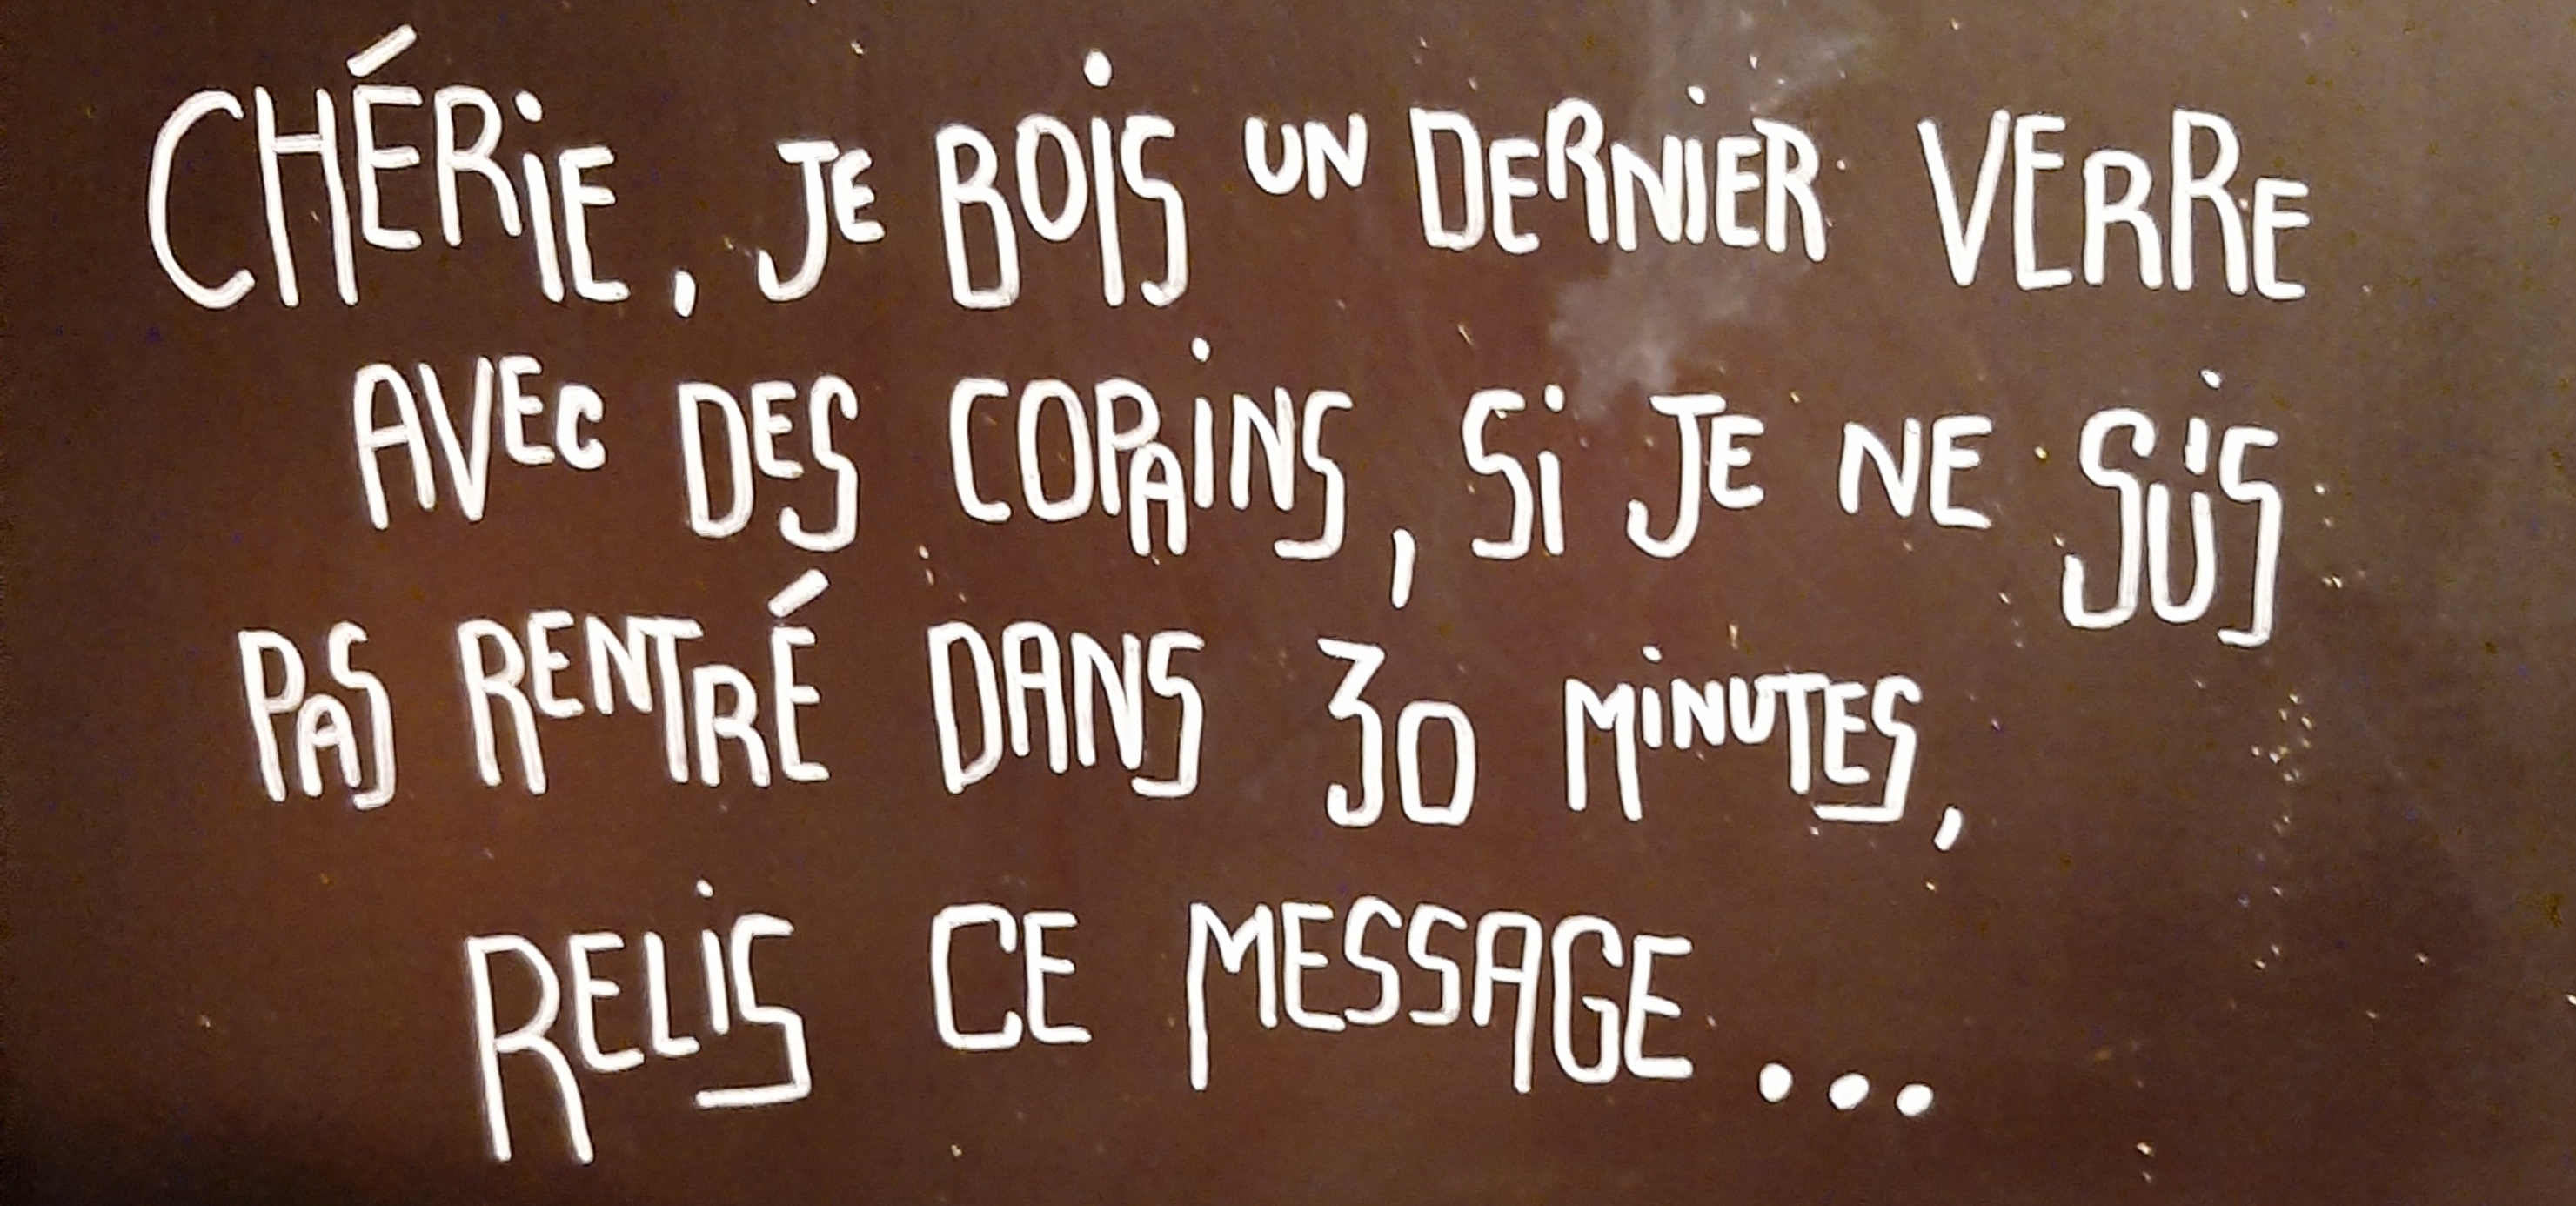 CHÉRIE, JE BOIS UN DERNIER VERRE
AVEC DES COPAINS, SI JE NE SUIS
PAS RENTRÉ DANS 30 MINUTES,
RELIS CE MESSAGE...